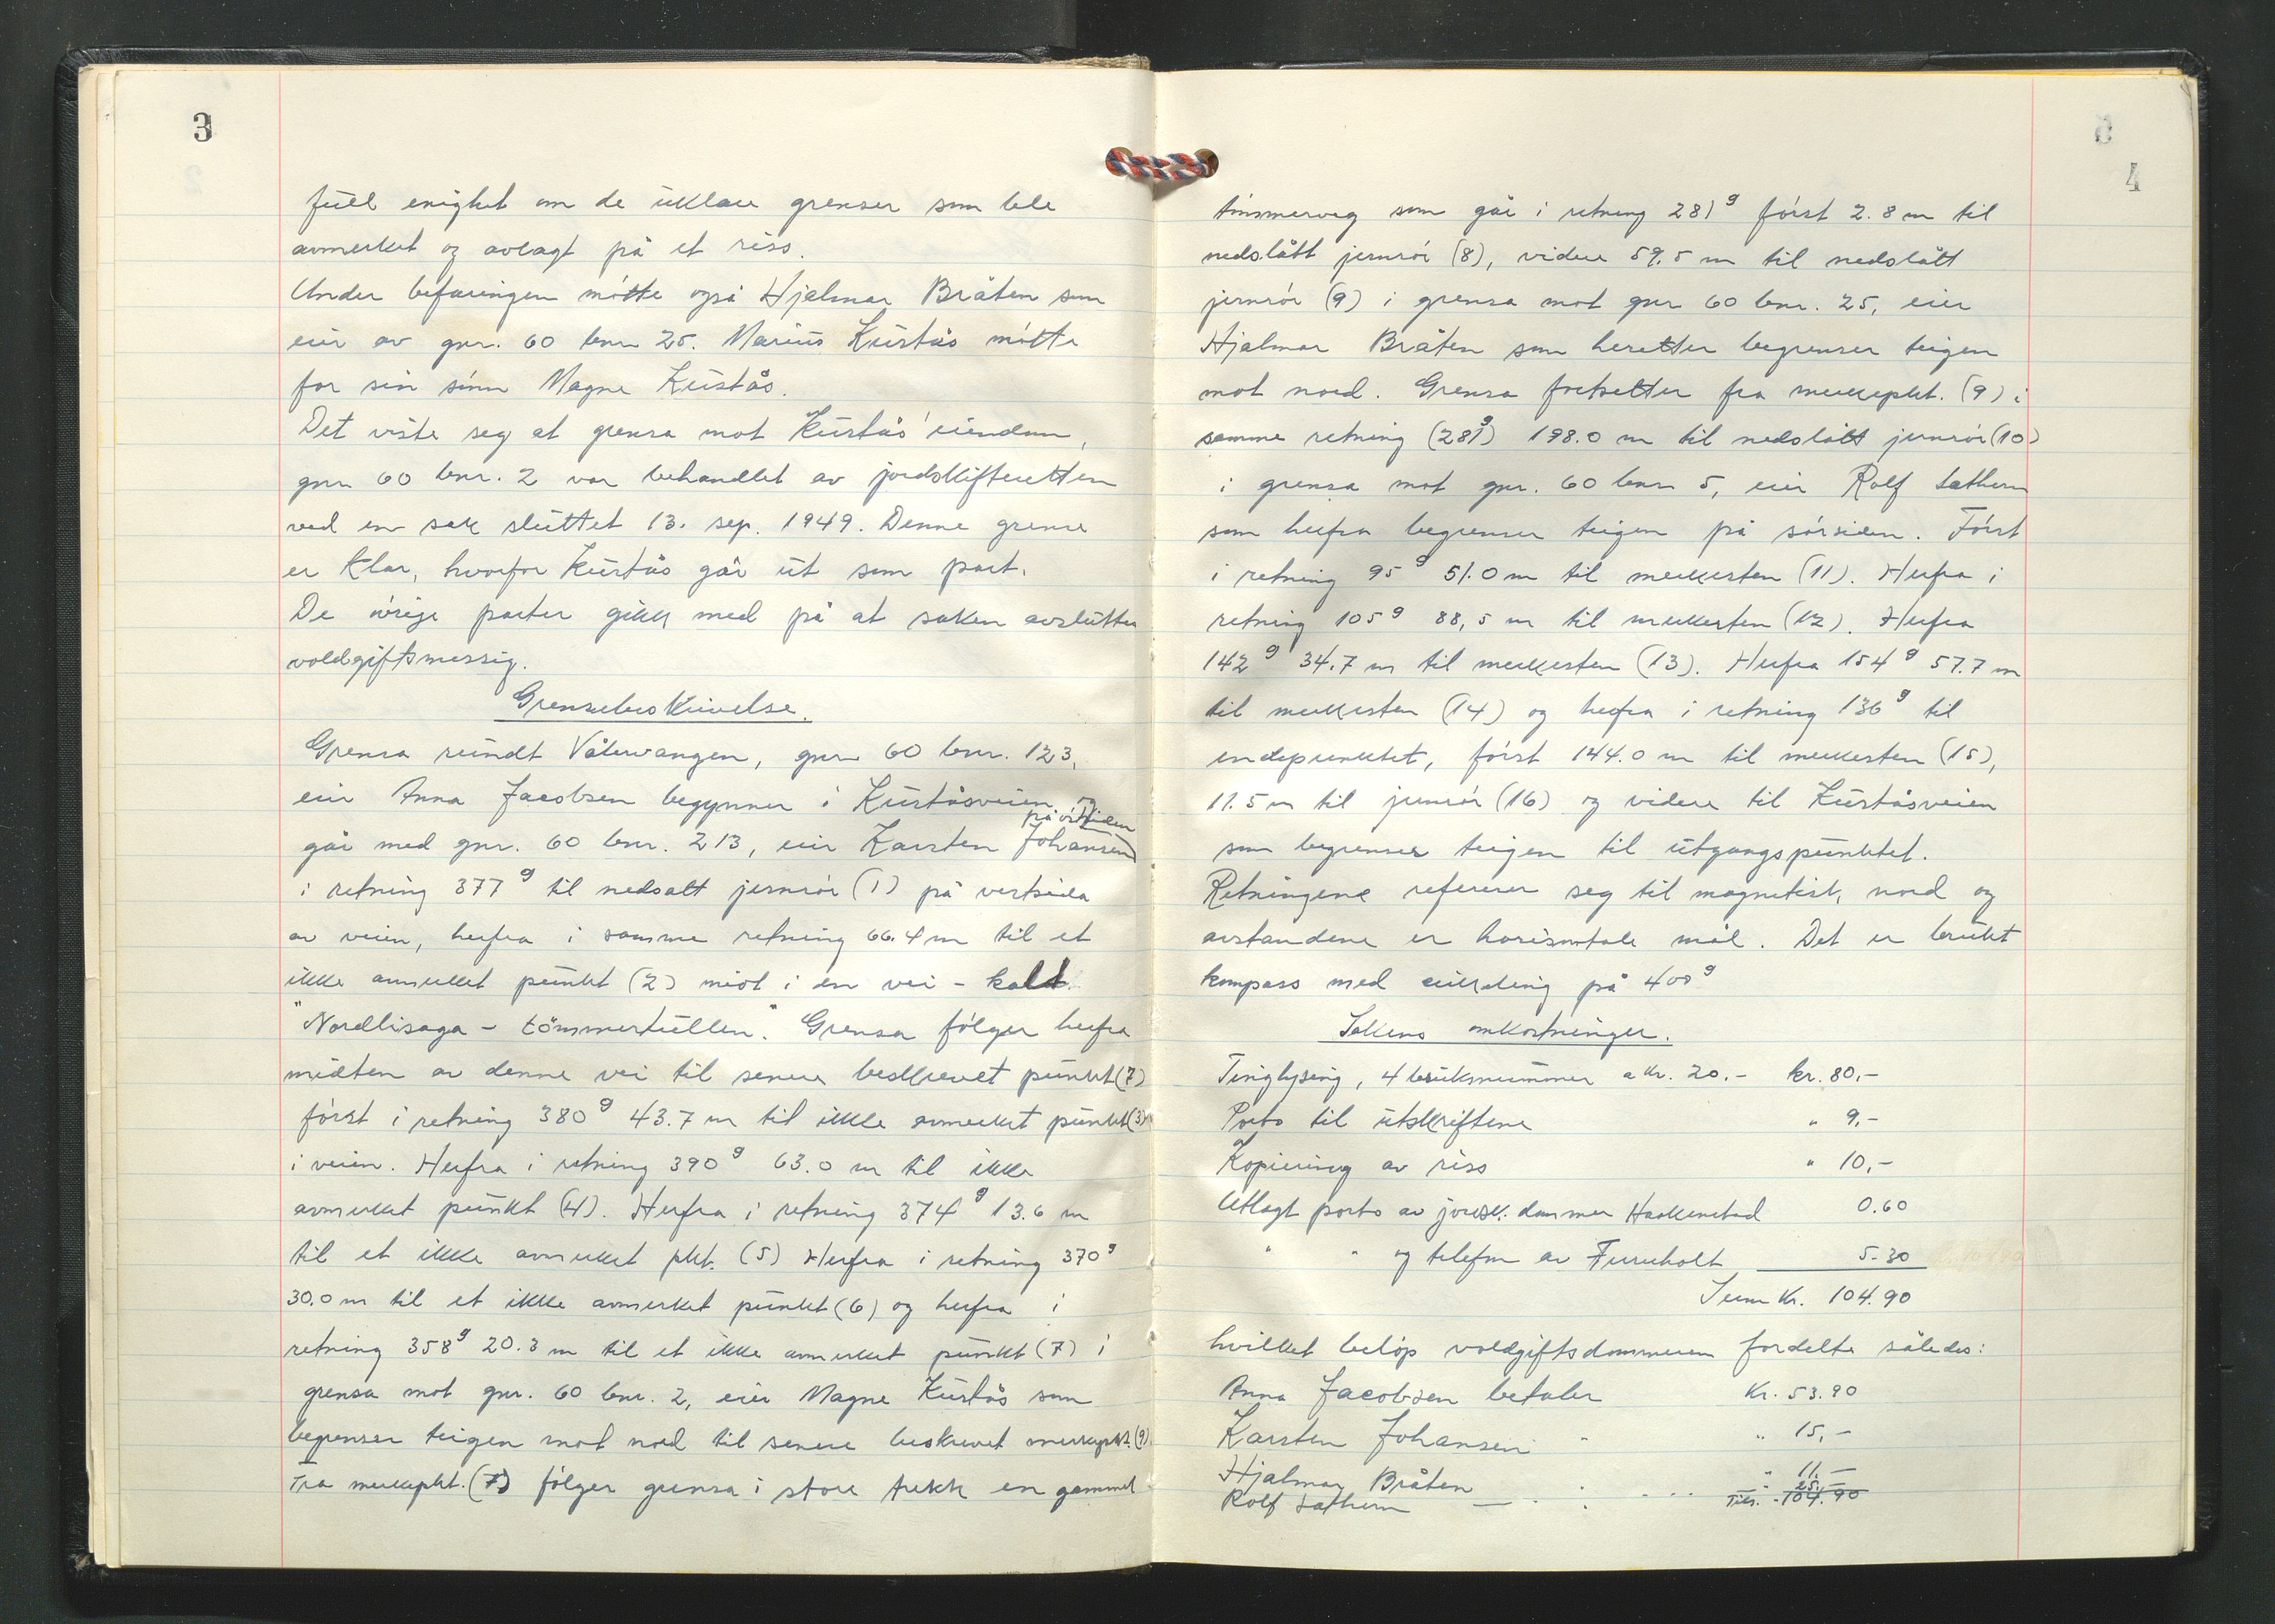 3
full enighet om de uklare grenser som ble
avmerket og avlagt på et riss.
Under befaringen møtte også Hjalmar Bråten som
eier av gnr. 60 bnr 25. Marius Kustås møtte
for sin sønn Magne Kustås.
Det viste seg at grensa mot Kustås' eiendom,
gnr 60 bnr. 2 var behandlet av jordskifteretten
ved en sak sluttet 13. sep. 1949. Denne grense
er klar, hvorfor Kustås går ut som part.
De øvrige parter gikk med på at saken avsluttes
voldgiftsmessig.
Grensebeskrivelse.
Grensa rundt Våtervangen, gnr 60 bnr. 123,
eier Anna Jacobsen begynner i Kuståsveien og
på østsiden
går med gnr. 60 bnr. 213, eier Karsten Johansen
i retning 377 g til nedsatt jernrør (1) på vestsida
av veien, herfra i samme retning 66.4 m til et
ikke avmerket punkt (2) midt i en vei - kalt
"Nordlisaga - tömmerkullen". Grensa følger herfra
midten av denne vei til senere beskrevet punkt (7)
først i retning 380 g 43.7 m til ikke avmerket punkt (3)
i veien. Herfra i retning 390 g 63.0 m til ikke
avmerket punkt (4). Herfra i retning 374 g 13.6 m
til et ikke avmerket pkt. (5) Herfra i retning 370 g
30.0 m til et ikke avmerket punkt (6) og herfra i
retning 358 g 20.3 m til et ikke avmerket punkt (7) i
grensa mot gnr. 60 bnr. 2, eier Magne Kustås som
begrenser teigen mot nord til senere beskrevet merkepkt. (9).
Fra merkepkt. (7) følger grensa i store trekk en gammel
4
timmerveg som går i retning 281 g først 2.8 m til
nedslått jernrør (8), videre 59.5 m til nedslått
jernrør (9) i grensa mot gnr 60 bnr. 25, eier
Hjalmar Bråten som heretter begrenser teigen
mot nord. Grensa fortsetter fra merkepkt. (9) i
samme retning (281 g) 198.0 m til nedslått jernrør (10)
i grensa mot gnr. 60 bnr 5, eier Rolf Sæthern
som herfra begrenser teigen på sørsiden. Først
i retning 95 g 51.0 m til merkesten (11). Herfra i
retning 105 g 88,5 m til merkesten (12). Herfra
142 g 34.7 m til merkesten (13). Herfra 154 g 57.7 m
til merkesten (14) og herfra i retning 136 g til
endepunktet, først 144.0 m til merkesten (15),
11.5 m til jernrør (16) og videre til Kuståsveien
som begrenser teigen til utgangspunktet.
Retningene refererer seg til magnetisk nord og
avstandene er horisontale mål. Det er brukt
kompass med sirkeling på 400 g
Sakens omkostninger.
Tinglysing, 4 bruksnummer a kr. 20.- kr. 80,-
Porto til utskriftene " 9,-
Kopiering av riss " 10,-
Utlagt porto av jordsk. dommer Haakenstad 0.60
" " og telefon av Furuholt 5.30
Sum kr. 104.90
hvilket beløp voldgiftsdommeren fordelte således:
Anna Jacobsen betaler kr. 53.90
Karsten Johansen " " 15,-
Hjalmar Bråten " " 11.-
Rolf Sæthern 25.-
Tils. 104.90